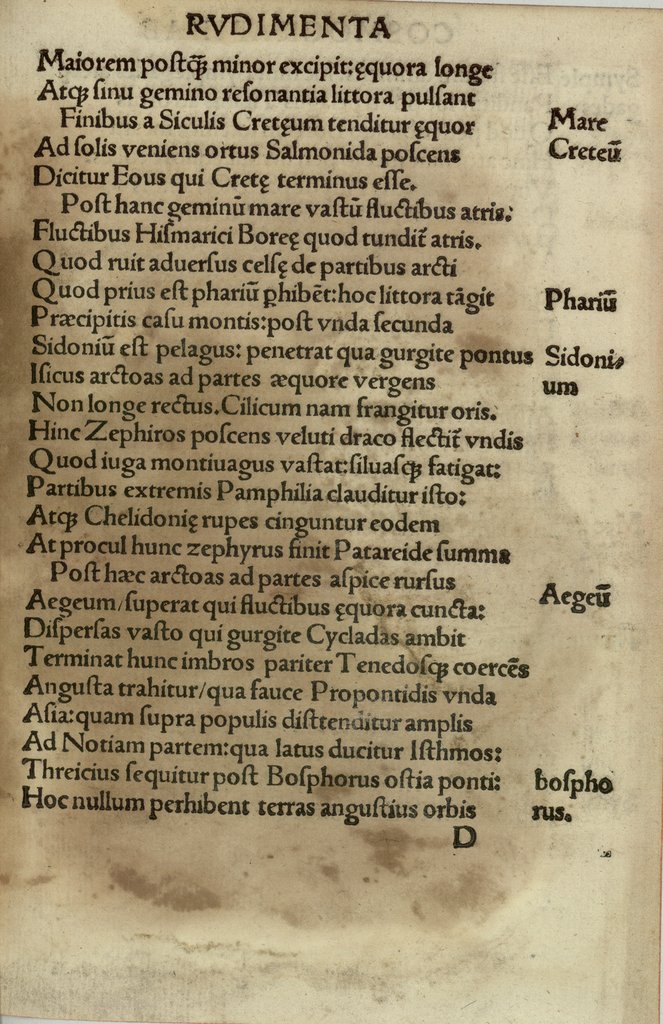 RVDIMENTA
Maiorem postq̃ minor excipit:ęquora longe
Atq; sinu gemino resonantia littora pulsant
Finibus a Siculis Cretęum tenditur ęquor
Mare
Ad solis veniens ortus Salmonida poscens
Creteũ
Dicitur Eous qui Cretę terminus esse.
Post hanc geminũ mare vastũ fluctibus atris.
Fluctibus Hismarici Boreę quod tundit̃ atris.
Quod ruit aduersus celsę de partibus arcti
Quod prius est phariũ ꝑhibẽt:hoc littora tãgit
Phariũ
Præcipitis casu montis:post vnda secunda
Sidoniũ est pelagus: penetrat qua gurgite pontus
Sidoni-
Isicus arctoas ad partes æquore vergens
um
Non longe rectus.Cilicum nam frangitur oris.
Hinc Zephiros poscens veluti draco flectit̃ vndis
Quod iuga montiuagus vastat:siluasq; fatigat:
Partibus extremis Pamphilia clauditur isto:
Atq; Chelidonię rupes cinguntur eodem
At procul hunc zephyrus finit Patareide summa
Post hæc arctoas ad partes aspice rursus
Aegeũ
Aegeum/superat qui fluctibus ęquora cuncta:
Dispersas vasto qui gurgite Cycladas ambit
Terminat hunc imbros pariter Tenedosq; coercẽs
Angusta trahitur/qua fauce Propontidis vnda
Asia:quam supra populis disttenditur amplis
Ad Notiam partem:qua latus ducitur Isthmos:
Threicius sequitur post Bosphorus ostia ponti:
bospho
Hoc nullum perhibent terras angustius orbis
rus.
D